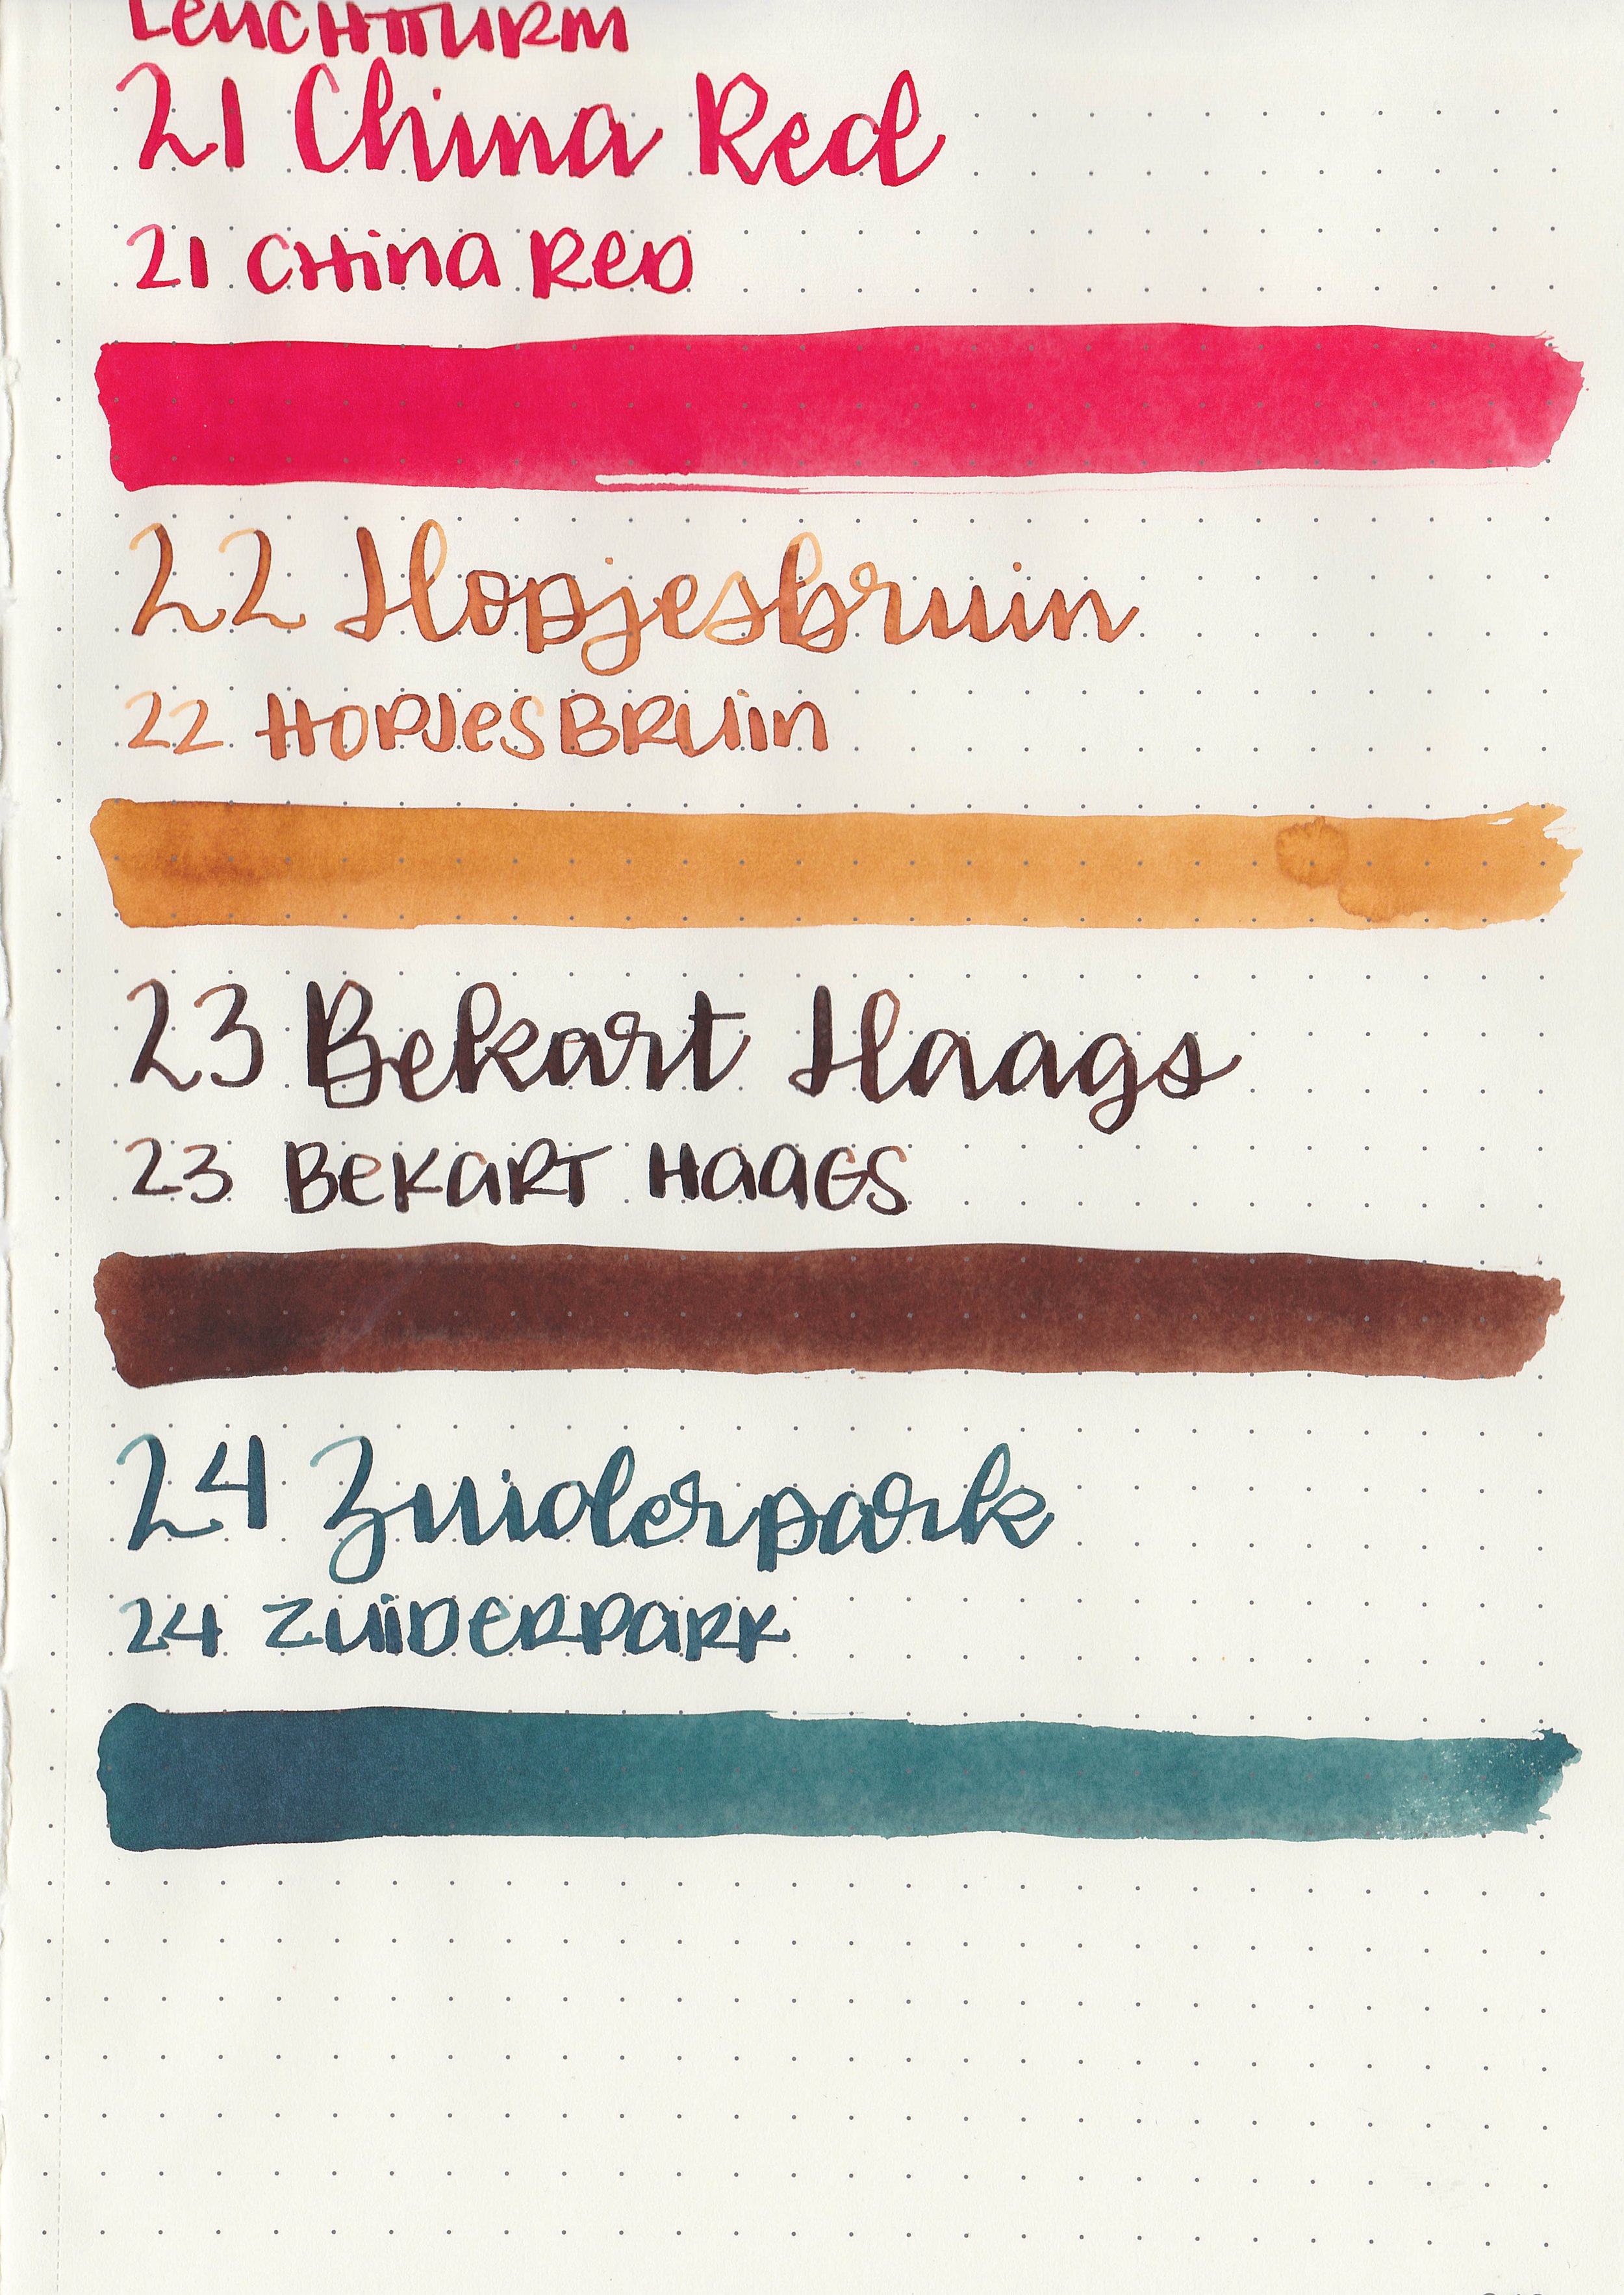 LEUCHTTURM
21 China Red
21 CHina RED
22 Hopjesbruin
22 HOPJesBRUin
23 Bekart Haags
23 BeKaRT HaaGS
24 Zuiderpark
24 ZuiDeRPaRK